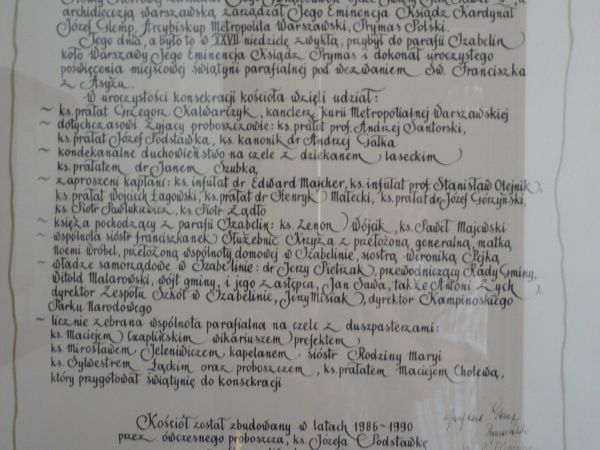 archidiecezją warszawską zarządzał Jego Eminencja Ksiądz Kardynał
Józef Glemp, Arcybiskup Metropolita Warszawski, Prymas Polski.
Tego dnia, a było to w XXVII niedzielę zwykłą, przybył do parafii Izabelin
koło Warszawy Jego Eminencja Ksiądz Prymas i dokonał uroczystego
poświęcenia miejscowej świątyni parafialnej pod wezwaniem Św. Franciszka
z Asyżu.
W uroczystości konsekracji kościoła wzięli udział:
~ ks. prałat Grzegorz Kalwarczyk, kanclerz kurii Metropolitalnej Warszawskiej
~ dotychczasowi żyjący proboszczowie: ks. prałat prof. Andrzej Santorski,
ks. prałat Józef Podstawka, ks. kanonik dr Andrzej Gałka
~ kondekanalne duchowieństwo na czele z dziekanem laseckim
ks. prałatem dr Janem Szubką,
~ zaproszeni kapłani: ks. infułat dr Edward Majcher, ks. infułat prof. Stanisław Olejnik,
ks. prałat Wojciech Łagowski, ks. prałat dr Henryk Małecki, ks. prałat dr Józef Górzyński,
ks. Piotr Pawlukiewicz, ks. Piotr Żądło
~ księża pochodzący z parafii Izabelin: ks. Zenon Wójcik, ks. Paweł Majewski
~ wspólnota sióstr franciszkanek Służebnic Krzyża z przełożoną generalną, matką
Noemi Wróbel, przełożoną wspólnoty domowej w Izabelinie, siostrą Weroniką Pejką
~ władze samorządowe w Izabelinie: dr Jerzy Pietrzak, przewodniczący Rady Gminy,
Witold Malarowski, wójt gminy, i jego zastępca, Jan Sawa, także Antoni Zych,
dyrektor Zespołu Szkół w Izabelinie, Jerzy Misiak, dyrektor Kampinoskiego
Parku Narodowego
~ licznie zebrana wspólnota parafialna na czele z duszpasterzami:
ks. Maciejem Czaplińskim wikariuszem prefektem,
ks. Mirosławem Jeleniwiczem, kapelanem sióstr Rodziny Maryi
ks. Sylwestrem Łąckim oraz proboszczem, ks. prałatem Maciejem Cholewą,
który przygotował świątynię do konsekracji
Kościół został zbudowany w latach 1986~1990
przez ówczesnego proboszcza, ks. Józefa Podstawkę